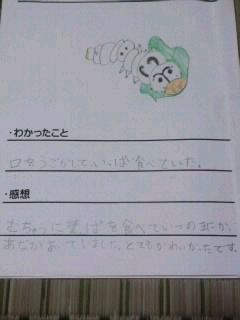 ・わかったこと
口をうごかして、いっぱい食べていた。
・感想
むちゅうに葉っぱを食べていつのまにか
あながあいていました。とてもかわいかったです。